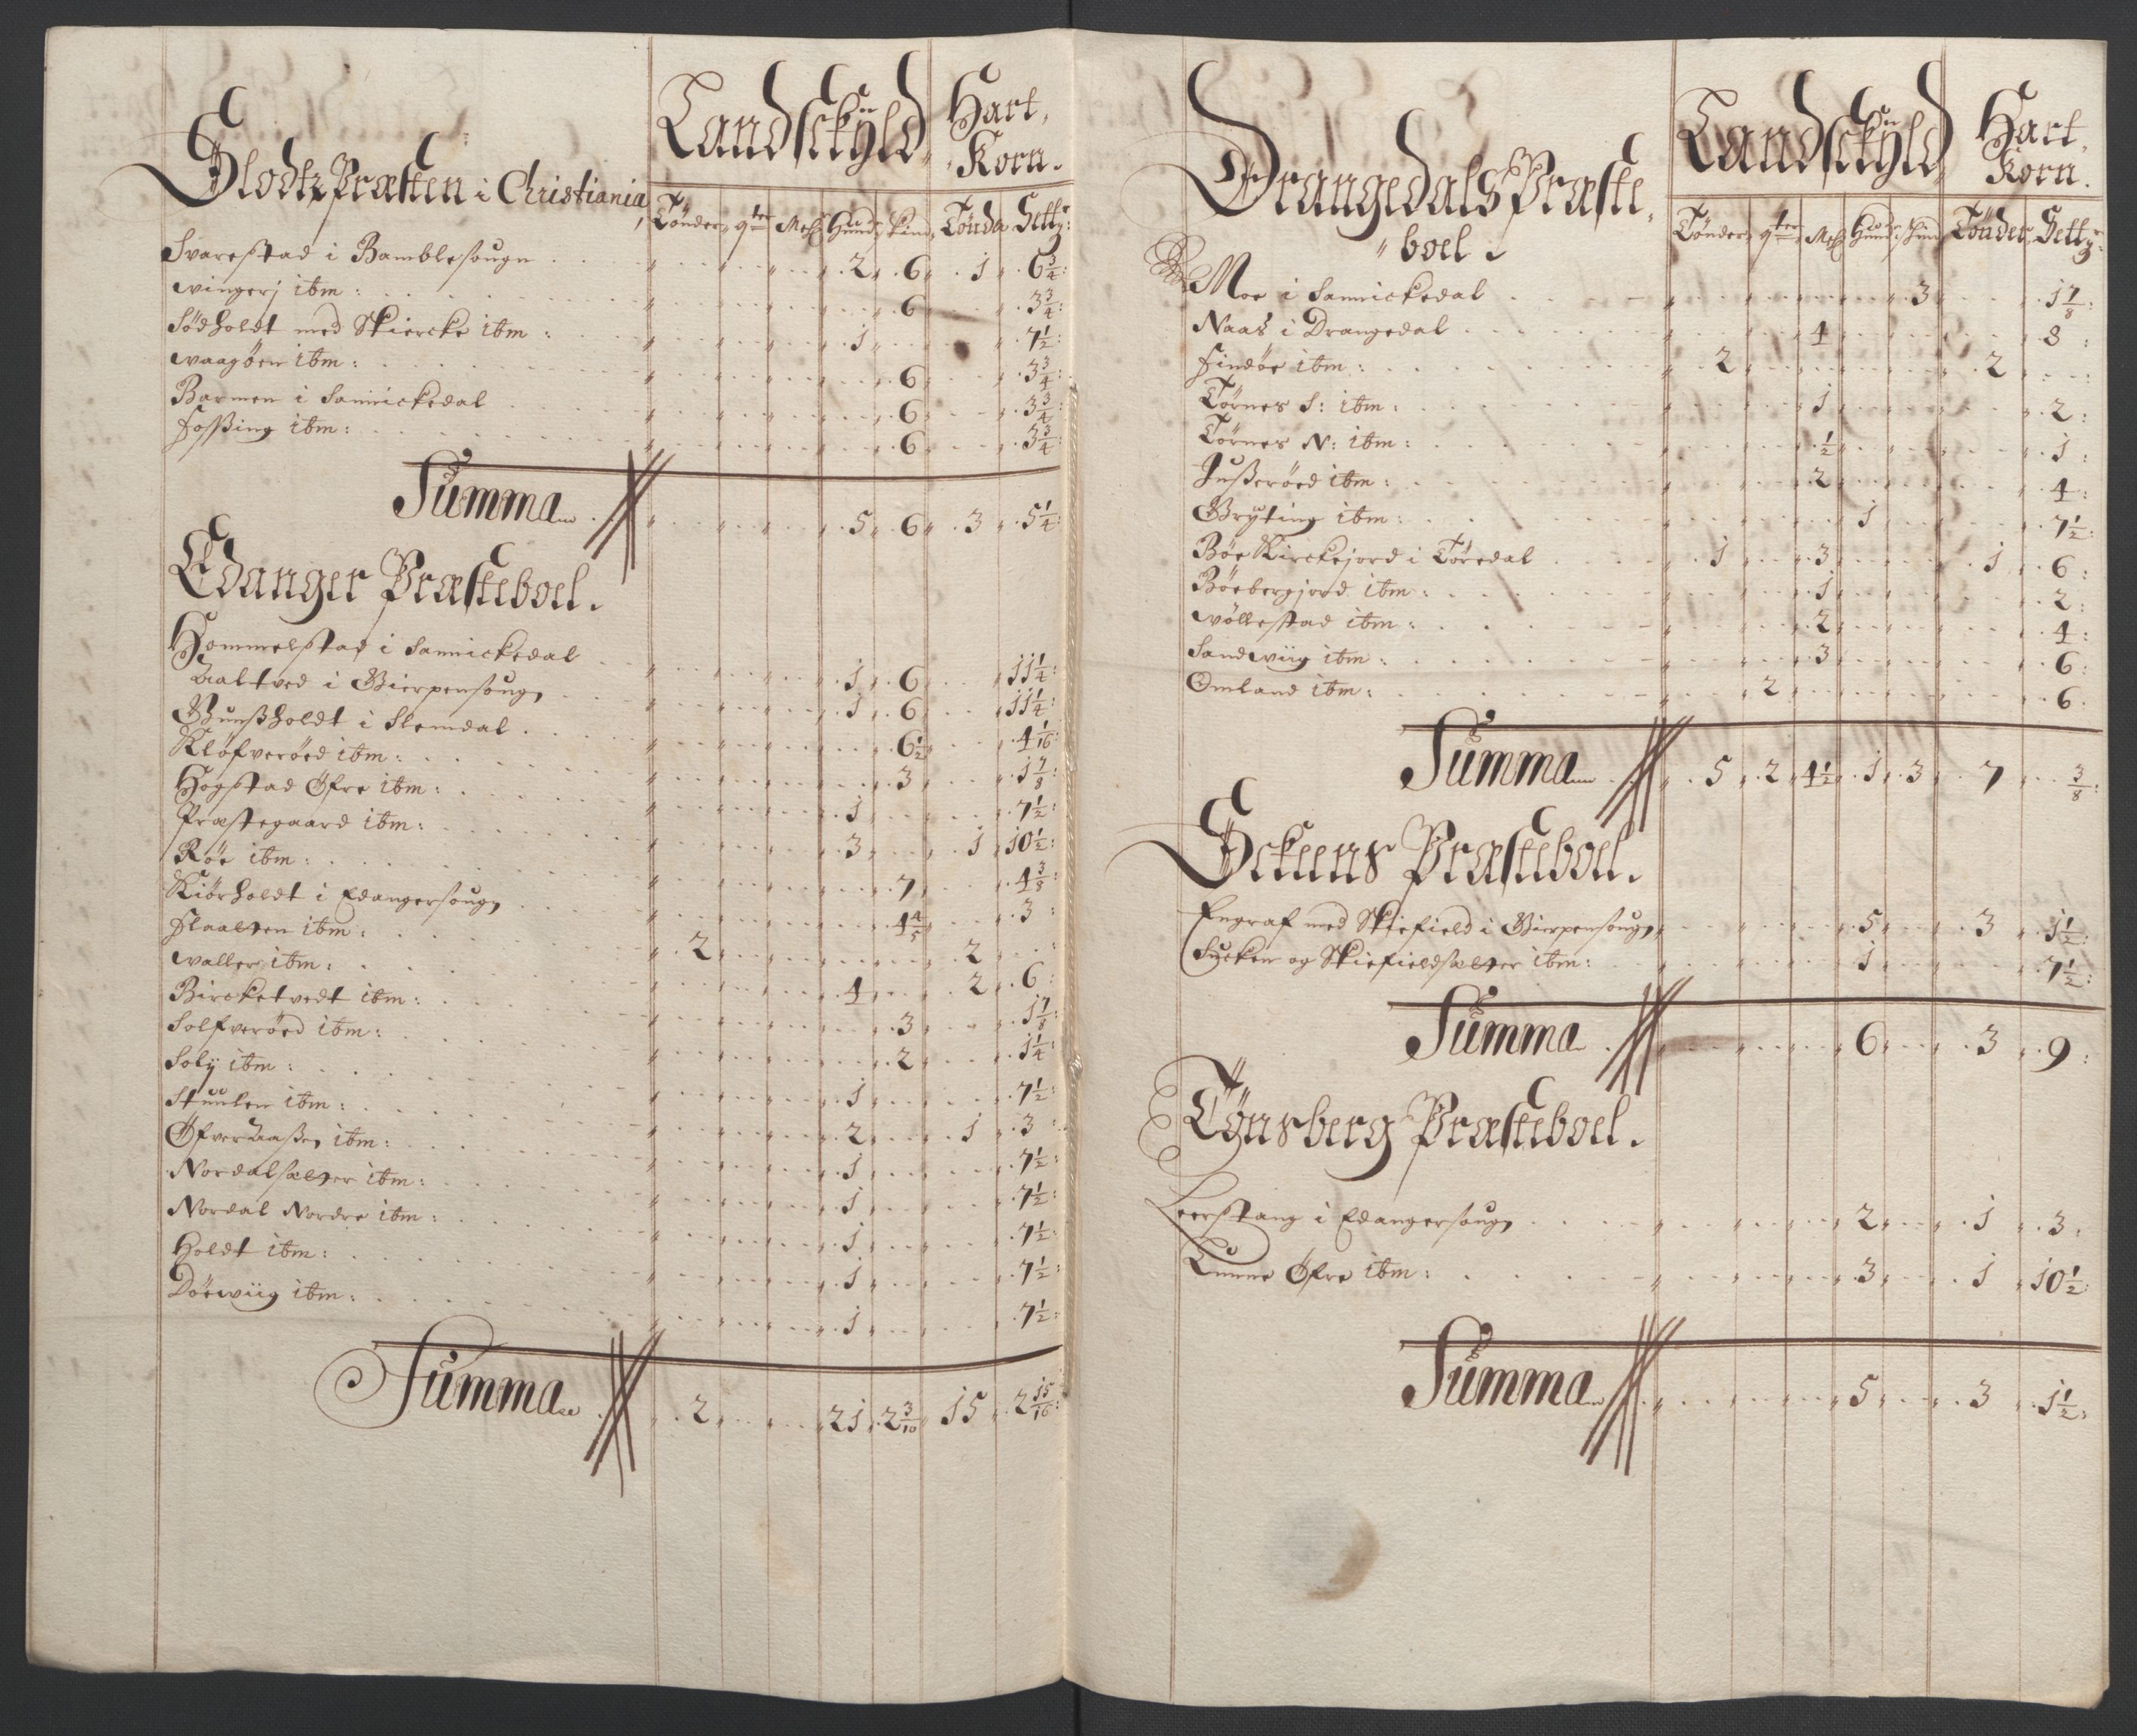 Slodtz Præsten i Christiania
Landschÿld
Hart Korn.
Tønder qter Mehl Hund: skind Tönda Sett:
Svarestad i Bamblesougn 2 6 1 6 3/4
wingerj ibm: 6 3 3/4
Södholdt med Skiercke ibm: 1 7 1/2
waagöen ibm: 6 3 3/4
Barmen i Sannickedal 6 3 3/4
Fossing ibm: 6 3 3/4
Summa 5 6 3 5 1/4
Edanger Præsteboel.
Hommelstad i Sannickedal 1 6 11 1/4
Gierpensougn 1 6 11 1/4
Gunsholdt i Slemdal 6 1/2 4 1/16
Klöfveröed ibm: 3 1 7/8
Hogstad Øfre ibm: 1 7 1/2
Præstegaard ibm: 3 1 10 1/2
Röe ibm: 7 4 3/8
Kiörholdt i Edangersougn 4 4/5 3
Flaatten ibm: 2 2
waller ibm: 4 2 6
Bircketvedt ibm: 3 1 7/8
Solfveröed ibm: 2 1 1/4
Solij ibm: 1 7 1/2
Stuulen ibm: 2 1 3
Øfveraasen ibm: 1 7 1/2
Nordalsætter ibm: 1 7 1/2
Nordal Nordre ibm: 1 7 1/2
Holdt ibm: 1 7 1/2
Dörwiig ibm: 1 7 1/2
Summa 2 21 2 3/10 15 2 15/16
Drangedals Præste
boel.
Landschÿld
Hart Korn.
Tönder qter Mehl Hund: skind Tönder Sett:
Moe i Sannickedal 3 1 7/8
Naas i Drangedal 4 8
Findöe ibm: 2 2
Törnes S: ibm: 1 2
Törnes N: ibm: 1/2 1
Jusseröed ibm: 2 4
Brÿting ibm: 1 7 1/2
Böe Kirckejord i Töredal 1 3 1 6
Böebergjord ibm: 1 2
wöllestad ibm: 2 4
Sandwiig ibm: 3 6
Omland ibm: 2 6
Summa 5 2 4 1/2 1 3 7 3/8
Schiens Præsteboel.
Engraf med Skiefield i Gierpensougn 5 3 1 1/2
og Skiefieldsætter ibm: 1 7 1/2
Summa 6 3 9
Tønsberg Præsteboel.
Leerstang i Edangersougn 2 1 3
Lunne Øfre ibm: 3 1 10 1/2
Summa 5 3 1 1/2